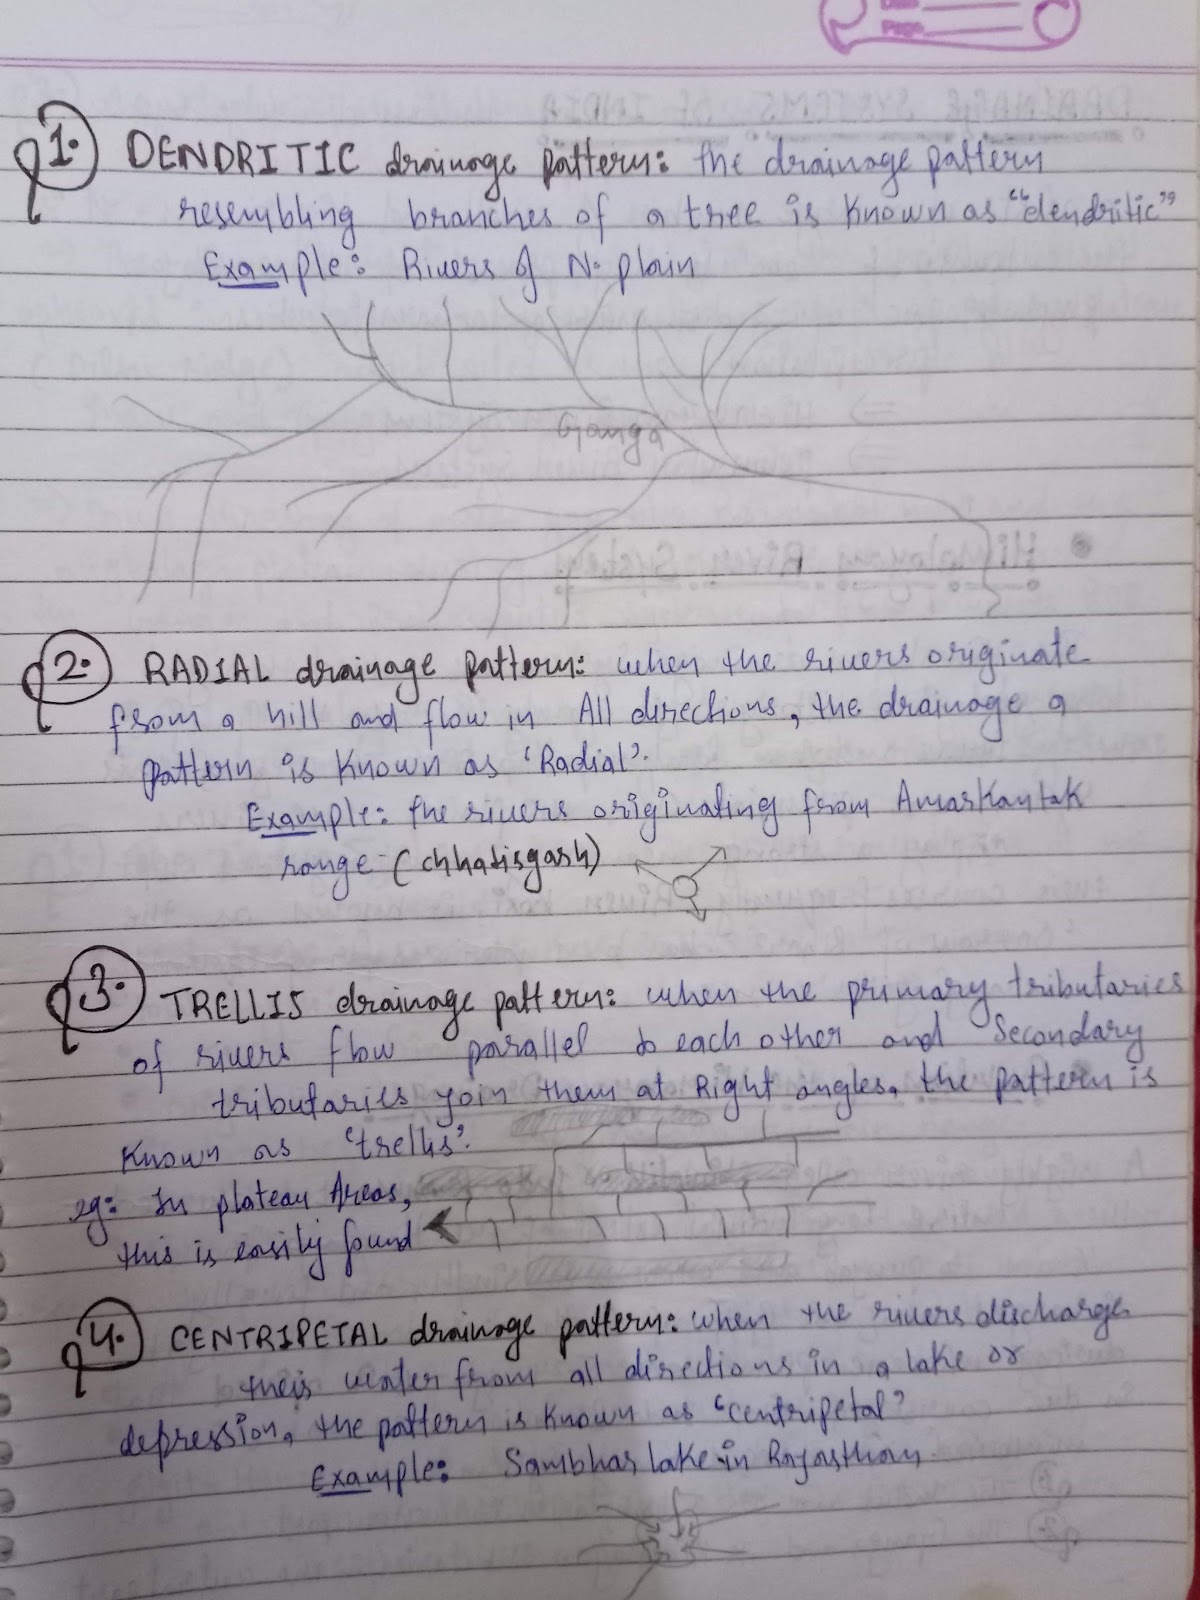 Page
1. DENDRITIC drainage pattern: the drainage pattern
resembling branches of a tree is known as "dendritic"
Example: Rivers of N. plain
Ganga
2. RADIAL drainage pattern: when the rivers originate
from a hill and flow in All directions, the drainage a
pattern is known as 'Radial'.
Example: the rivers originating from Amarkantak
range - (chhatisgarh)
3. TRELLIS drainage pattern: when the primary tributaries
of rivers flow parallel to each other and Secondary
tributaries join them at Right angles, the pattern is
known as 'trellis'.
eg: In plateau Areas,
this is easily found
4. CENTRIPETAL drainage pattern: when the rivers discharge
their water from all directions in a lake or
depression, the pattern is known as 'centripetal'
Example: Sambhar lake in Rajasthan.